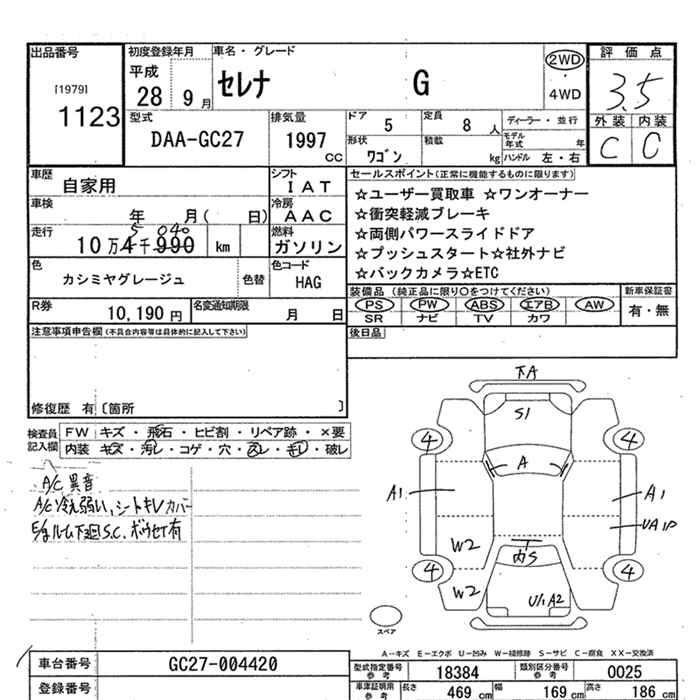 出品番号
[1979]
1123
初度登録年月
平成
28 9月
車名・グレード
セレナ G
2WD
・
4WD
評価点
3.5
外装 内装
C C
型式
DAA-GC27
排気量
1997
CC
ドア 5
定員 8 人
形状 ワゴン
積載 kg
ディーラー・並行
モデル年式 年
ハンドル 左・右
車歴
自家用
シフト
I A T
車検
年 月( 日)
冷房
A A C
走行
5 040
10万4千990 km
燃料
ガソリン
色
カシミヤグレージュ
色替
色コード
HAG
R券
10,190 円
名変通知期限
月 日
セールスポイント(正常に機能するものに限ります)
☆ユーザー買取車 ☆ワンオーナー
☆衝突軽減ブレーキ
☆両側パワースライドドア
☆プッシュスタート☆社外ナビ
☆バックカメラ☆ETC
装備品 (純正品に限り○をつけてください)
PS PW ABS エアB AW
SR ナビ TV カワ
新車保証書
有・無
後日品
注意事項申告欄(不具合内容等は具体的に記入して下さい)
修復歴 有〔箇所 〕
検査員記入欄
FW キズ・飛石・ヒビ割・リペア跡・×要
内装 キズ・汚レ・コゲ・穴・スレ・キレ・破レ
A/C 異音
A/C冷え弱い、シートキレカバー
E/gルーム下廻S.C. ボウセイ有
下A
S1
4 4
A
A1 A1
UA1P
W2
内S
4 4
W2
U/1A2
スペア
A-キズ E-エクボ U-凹み W-補修跡 S-サビ C-腐食 XX-交換済
車台番号 GC27-004420
登録番号
型式指定番号 参考 18384
類別区分番号 参考 0025
車検証明用 参考
長さ 469 cm
幅 169 cm
高さ 186 cm